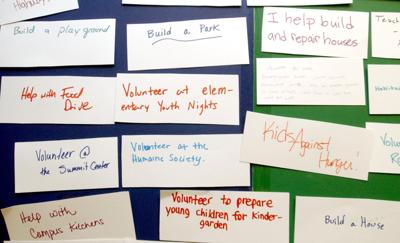 Build a playground
Build a Park
I help build
and repair houses
Teach
Help with Food
Drive
Volunteer at elem-
entary Youth Nights
Volunteer @
the Summit Center
Volunteer at the
Humaine Society.
Kids Against
Hunger!
Help with
Campus Kitchens
Volunteer to prepare
young children for kinder-
garden
Build a House